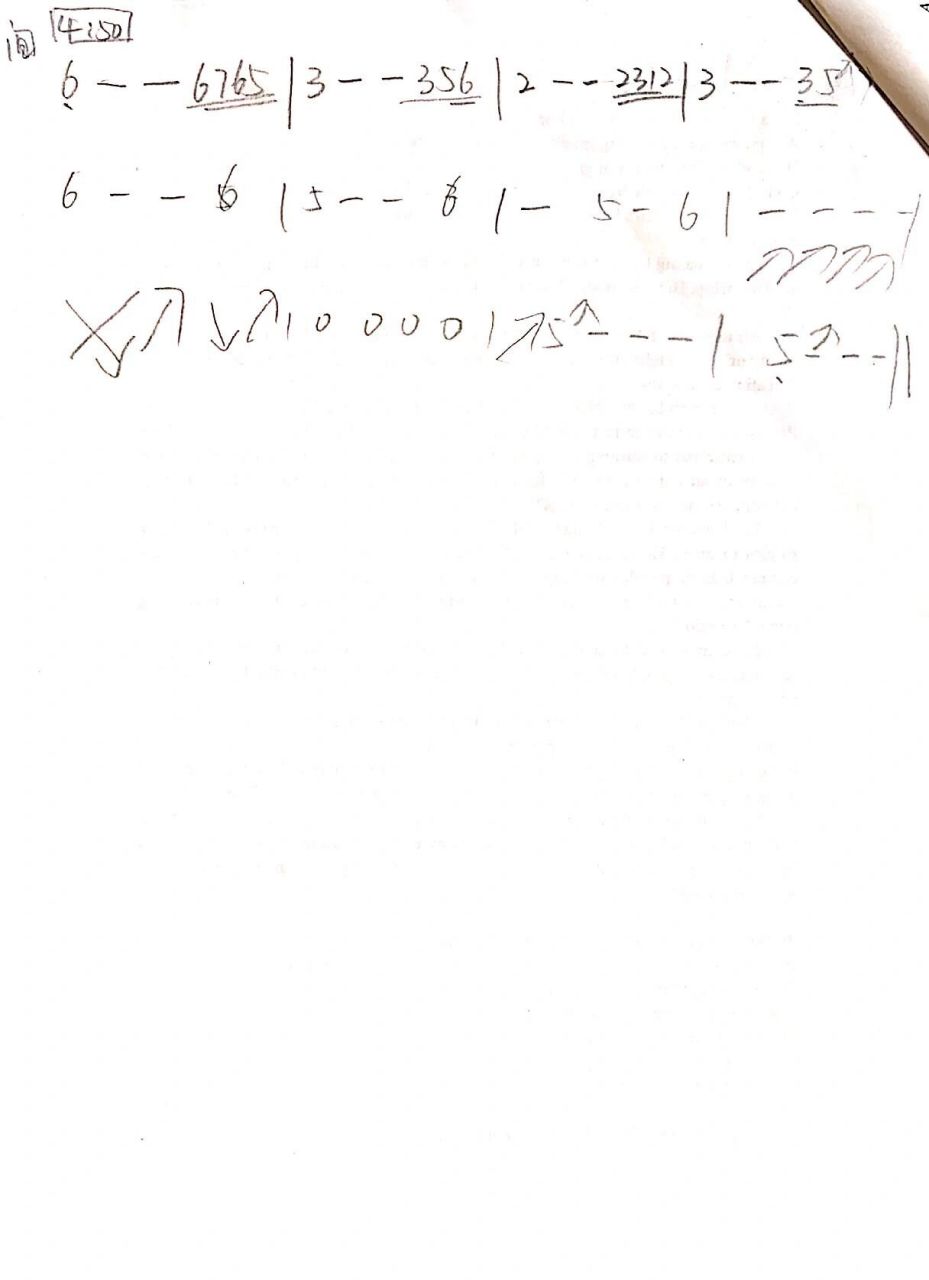 间 4:50
6 - - 6765 | 3 - - 356 | 2 - - 2312 | 3 - - 35↗
6 - - 6 | 5 - - 6 | - 5 - 6 | - - - - |
↗ ↘ ↗ | 0 0 0 0 | ↗5↗ - - - | 5↗ - - ||